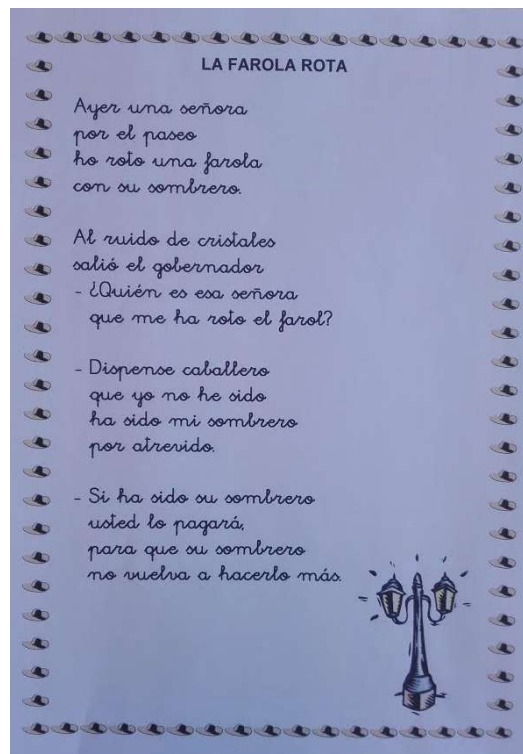 LA FAROLA ROTA
Ayer una señora
por el paseo
ho roto una farola
con su sombrero.
Al ruido de cristales
salió el gobernador
- ¿Quién es esa señora
que me ha roto el farol?
- Dispense caballero
que yo no he sido
ha sido mi sombrero
por atrevido.
- Si ha sido su sombrero
usted lo pagará,
para que su sombrero
no vuelva a hacerlo más.